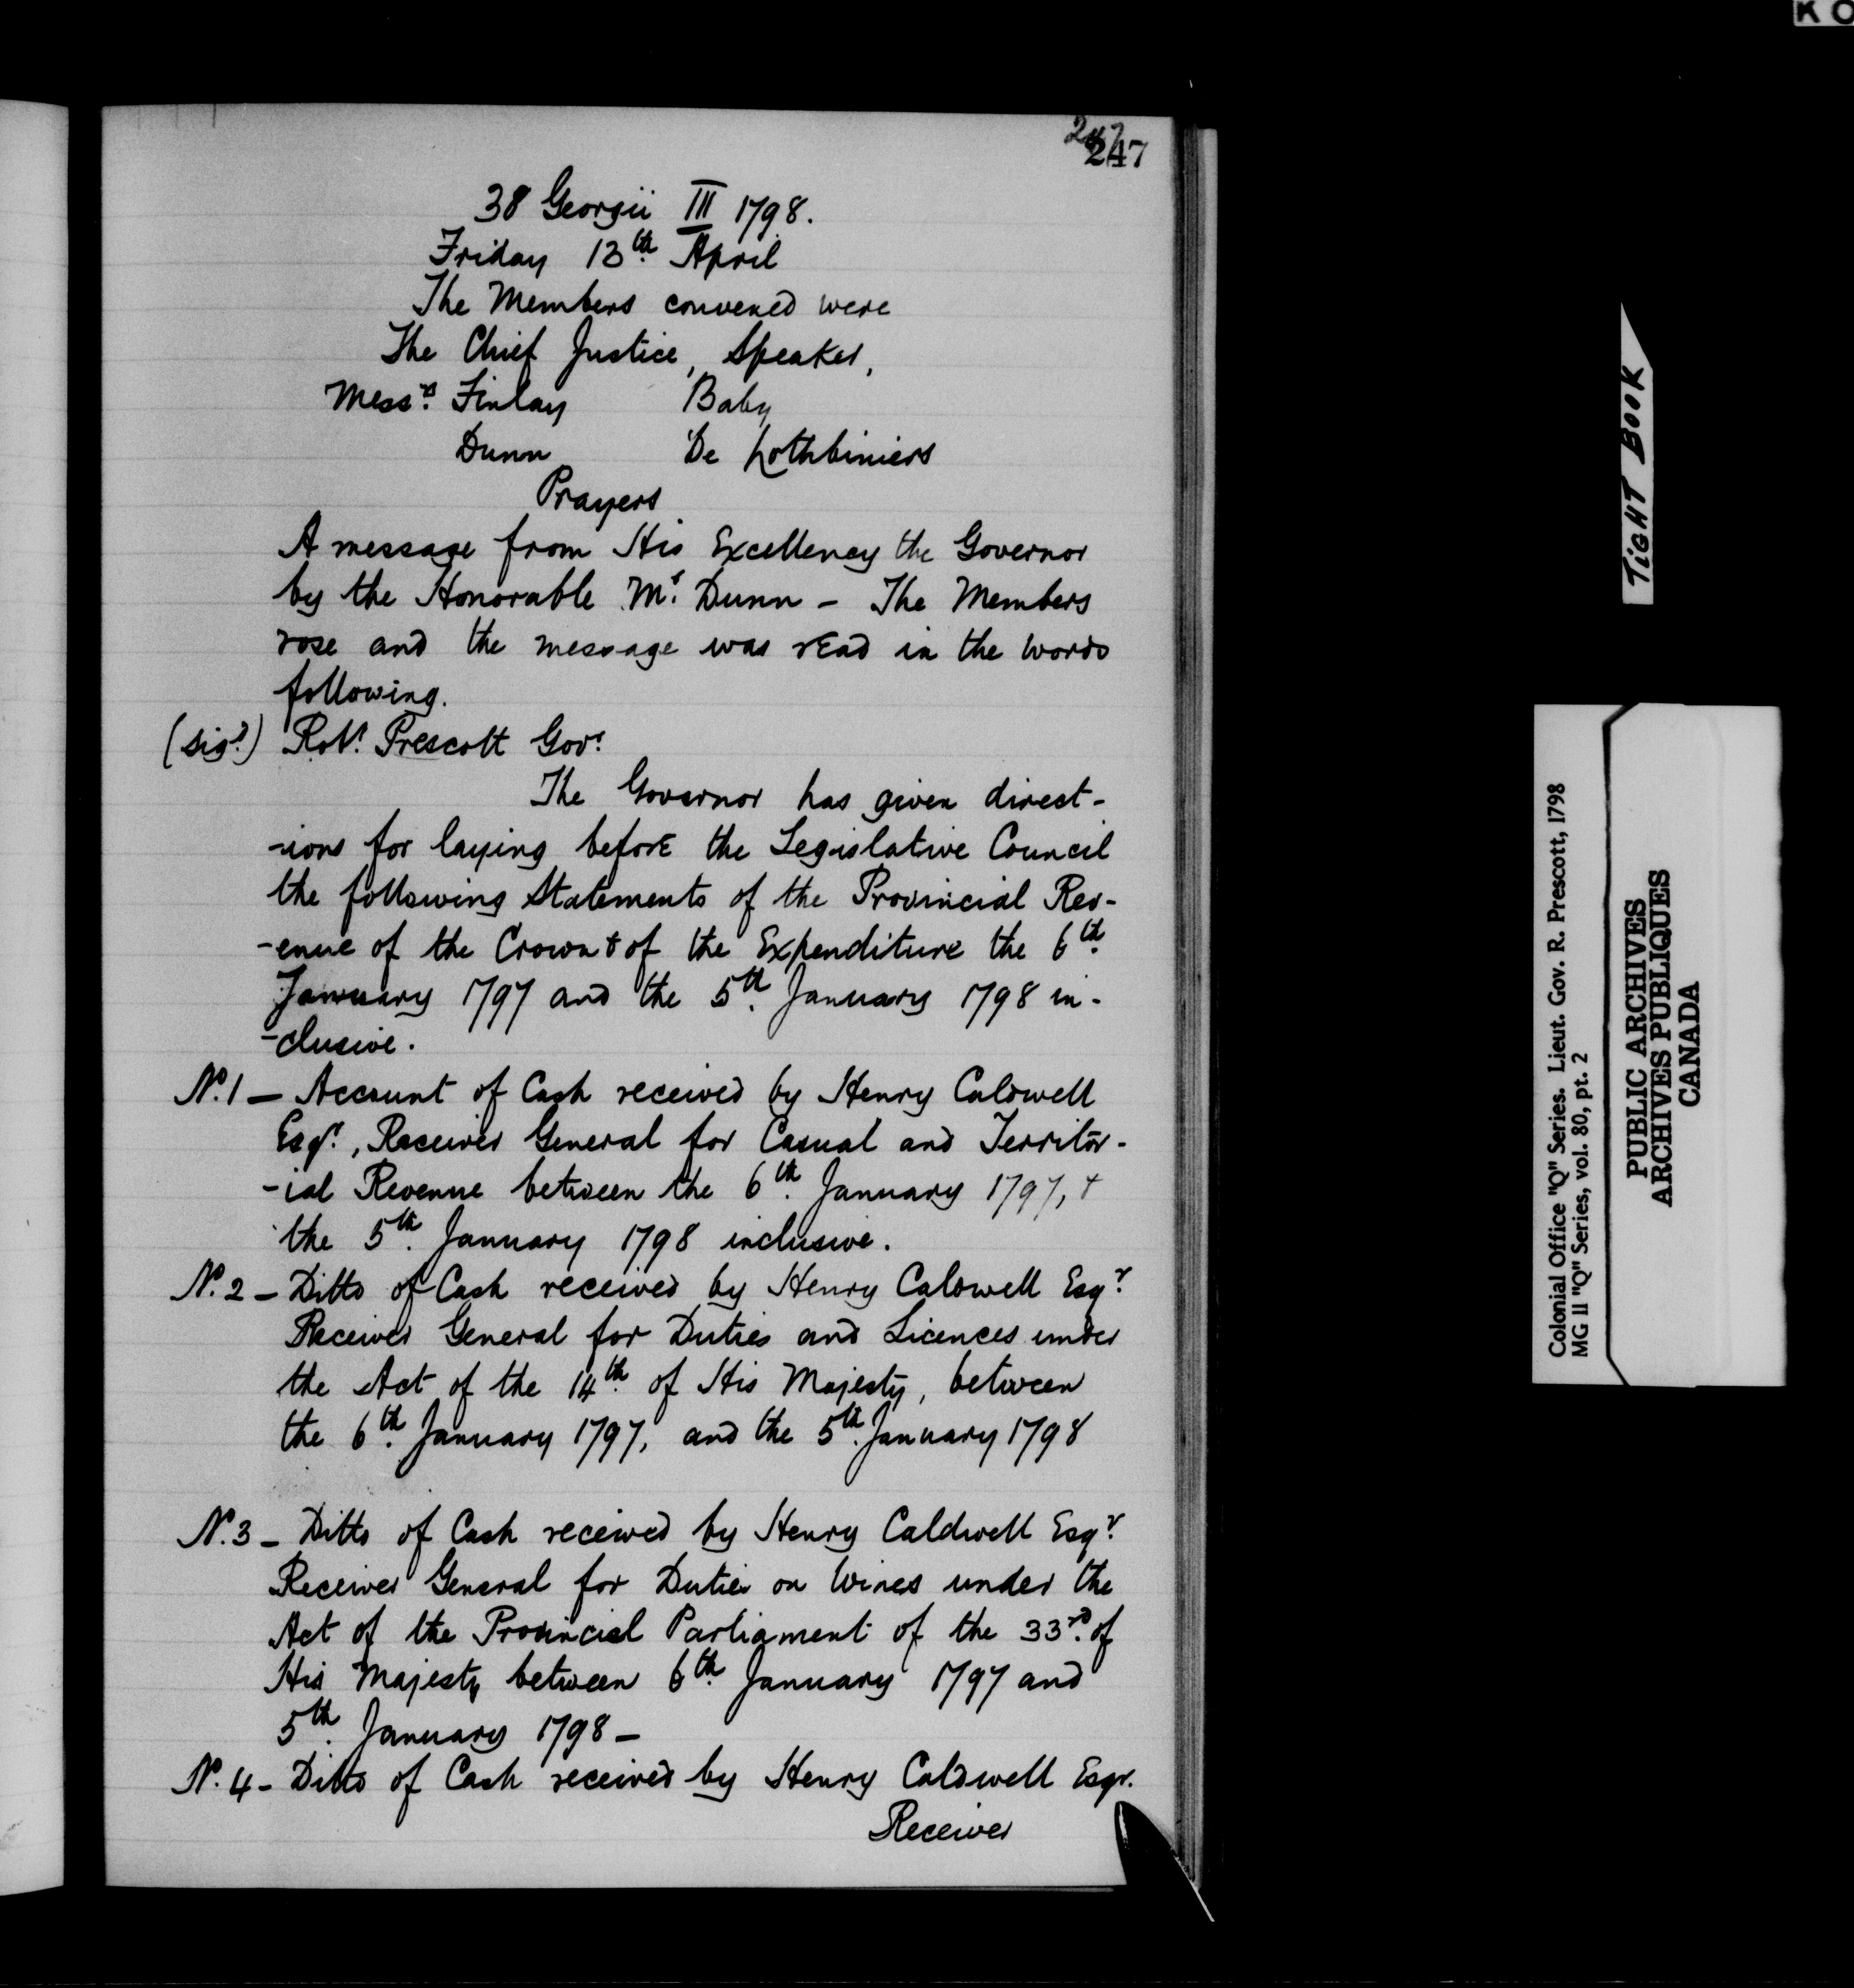 KO
247
247
38 Georgii III 1798.
Friday 13th April
The Members convened were
The Chief Justice, Speaker,
Messrs Finlay Baby
Dunn De Lothbiniers
Prayers
A message from His Excellency the Governor
by the Honorable Mr. Dunn – The Members
rose and the message was read in the words
following.
(sigd) Robt. Prescott Govr.
The Governor has given direct-
-ions for laying before the Legislative Council
the following Statements of the Provincial Rev-
-enue of the Crown & of the Expenditure the 6th
January 1797 and the 5th January 1798 in-
-clusive.
No. 1 – Account of Cash received by Henry Caldwell
Esqr., Receiver General for Casual and Territor-
-ial Revenue between the 6th January 1797, &
the 5th January 1798 inclusive.
No. 2 – Ditto of Cash received by Henry Caldwell Esqr
Receiver General for Duties and Licences under
the Act of the 14th of His Majesty, between
the 6th January 1797, and the 5th January 1798
No. 3 – Ditto of Cash received by Henry Caldwell Esqr
Receiver General for Duties on Wines under the
Act of the Provincial Parliament of the 33rd of
His Majesty between 6th January 1797 and
5th January 1798 –
No. 4 – Ditto of Cash received by Henry Caldwell Esqr.
Receiver
TIGHT BOOK
Colonial Office "Q" Series. Lieut. Gov. R. Prescott, 1798
MG 11 "Q" Series, vol. 80, pt. 2
PUBLIC ARCHIVES
ARCHIVES PUBLIQUES
CANADA